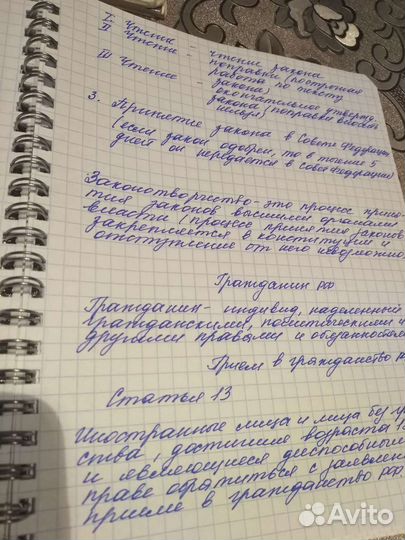 I Чтение - чтение закона
II Чтение - поправки (построчная работа по тексту закона)
III Чтение - окончательное утвержд. закона (поправки вносить нельзя)
3. Принятие закона в Совете Федерации
(если закон одобрен, то в течение 5
дней он передаётся в Совет Федерации)
Законотворчество - это процесс приня-
тия законов высшими органами
власти (процесс принятия законов
закрепляется в конституции и
отступление от него невозможно)
Гражданин РФ
Гражданин - индивид, наделенный
гражданскими, политическими и
другими правами и обязанностями
Прием в гражданство
Статья 13
Иностранные лица и лица без гр
ства, достигшие возраста 18
и являющиеся дееспособными
праве обратиться с заявлением
приеме в гражданство РФ
Avito